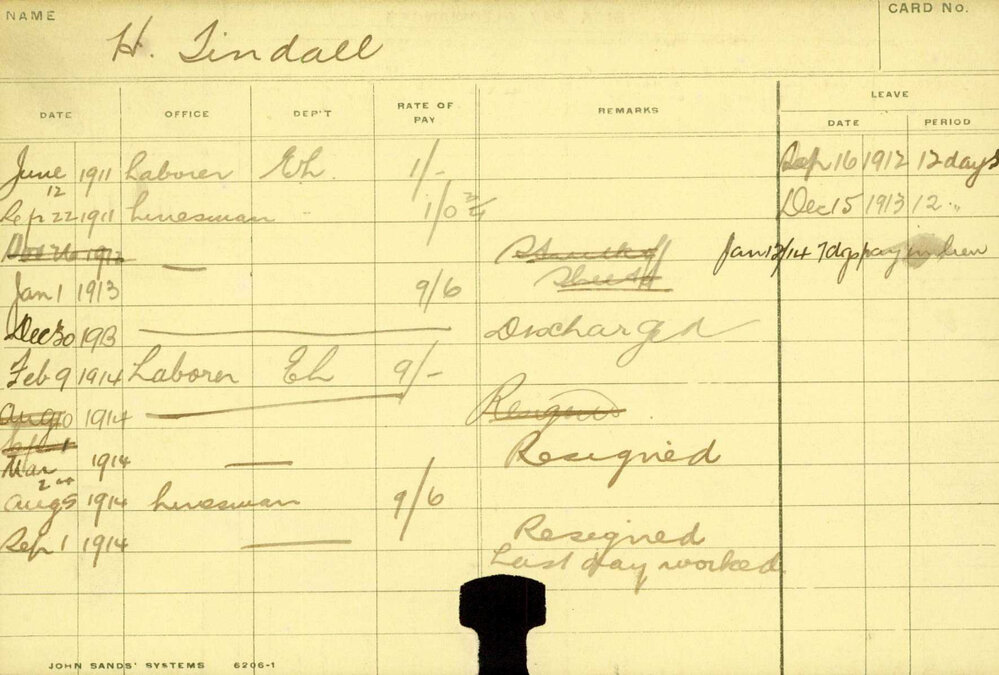 NAME
CARD NO.
H. Tindall
DATE OFFICE DEP'T RATE OF PAY REMARKS LEAVE
DATE PERIOD
June 12 1911 Laborer Eh. 1/- Sep 16 1912 12 days
Sep 22 1911 Linesman " 1/0 3/4 Dec 15 1913 12 "
1912 — Jan 13/14 7 dys pay in lieu
Jan 1 1913 9/6
Dec 30 1913 — Discharged
Feb 9 1914 Laborer Eh 9/-
Aug 10 1914 — Resigned
Sep 1
Mar 2nd 1914 — Resigned
Aug 5 1914 Linesman 9/6
Sep 1 1914 — Resigned
Last day worked
JOHN SANDS' SYSTEMS 6206-1